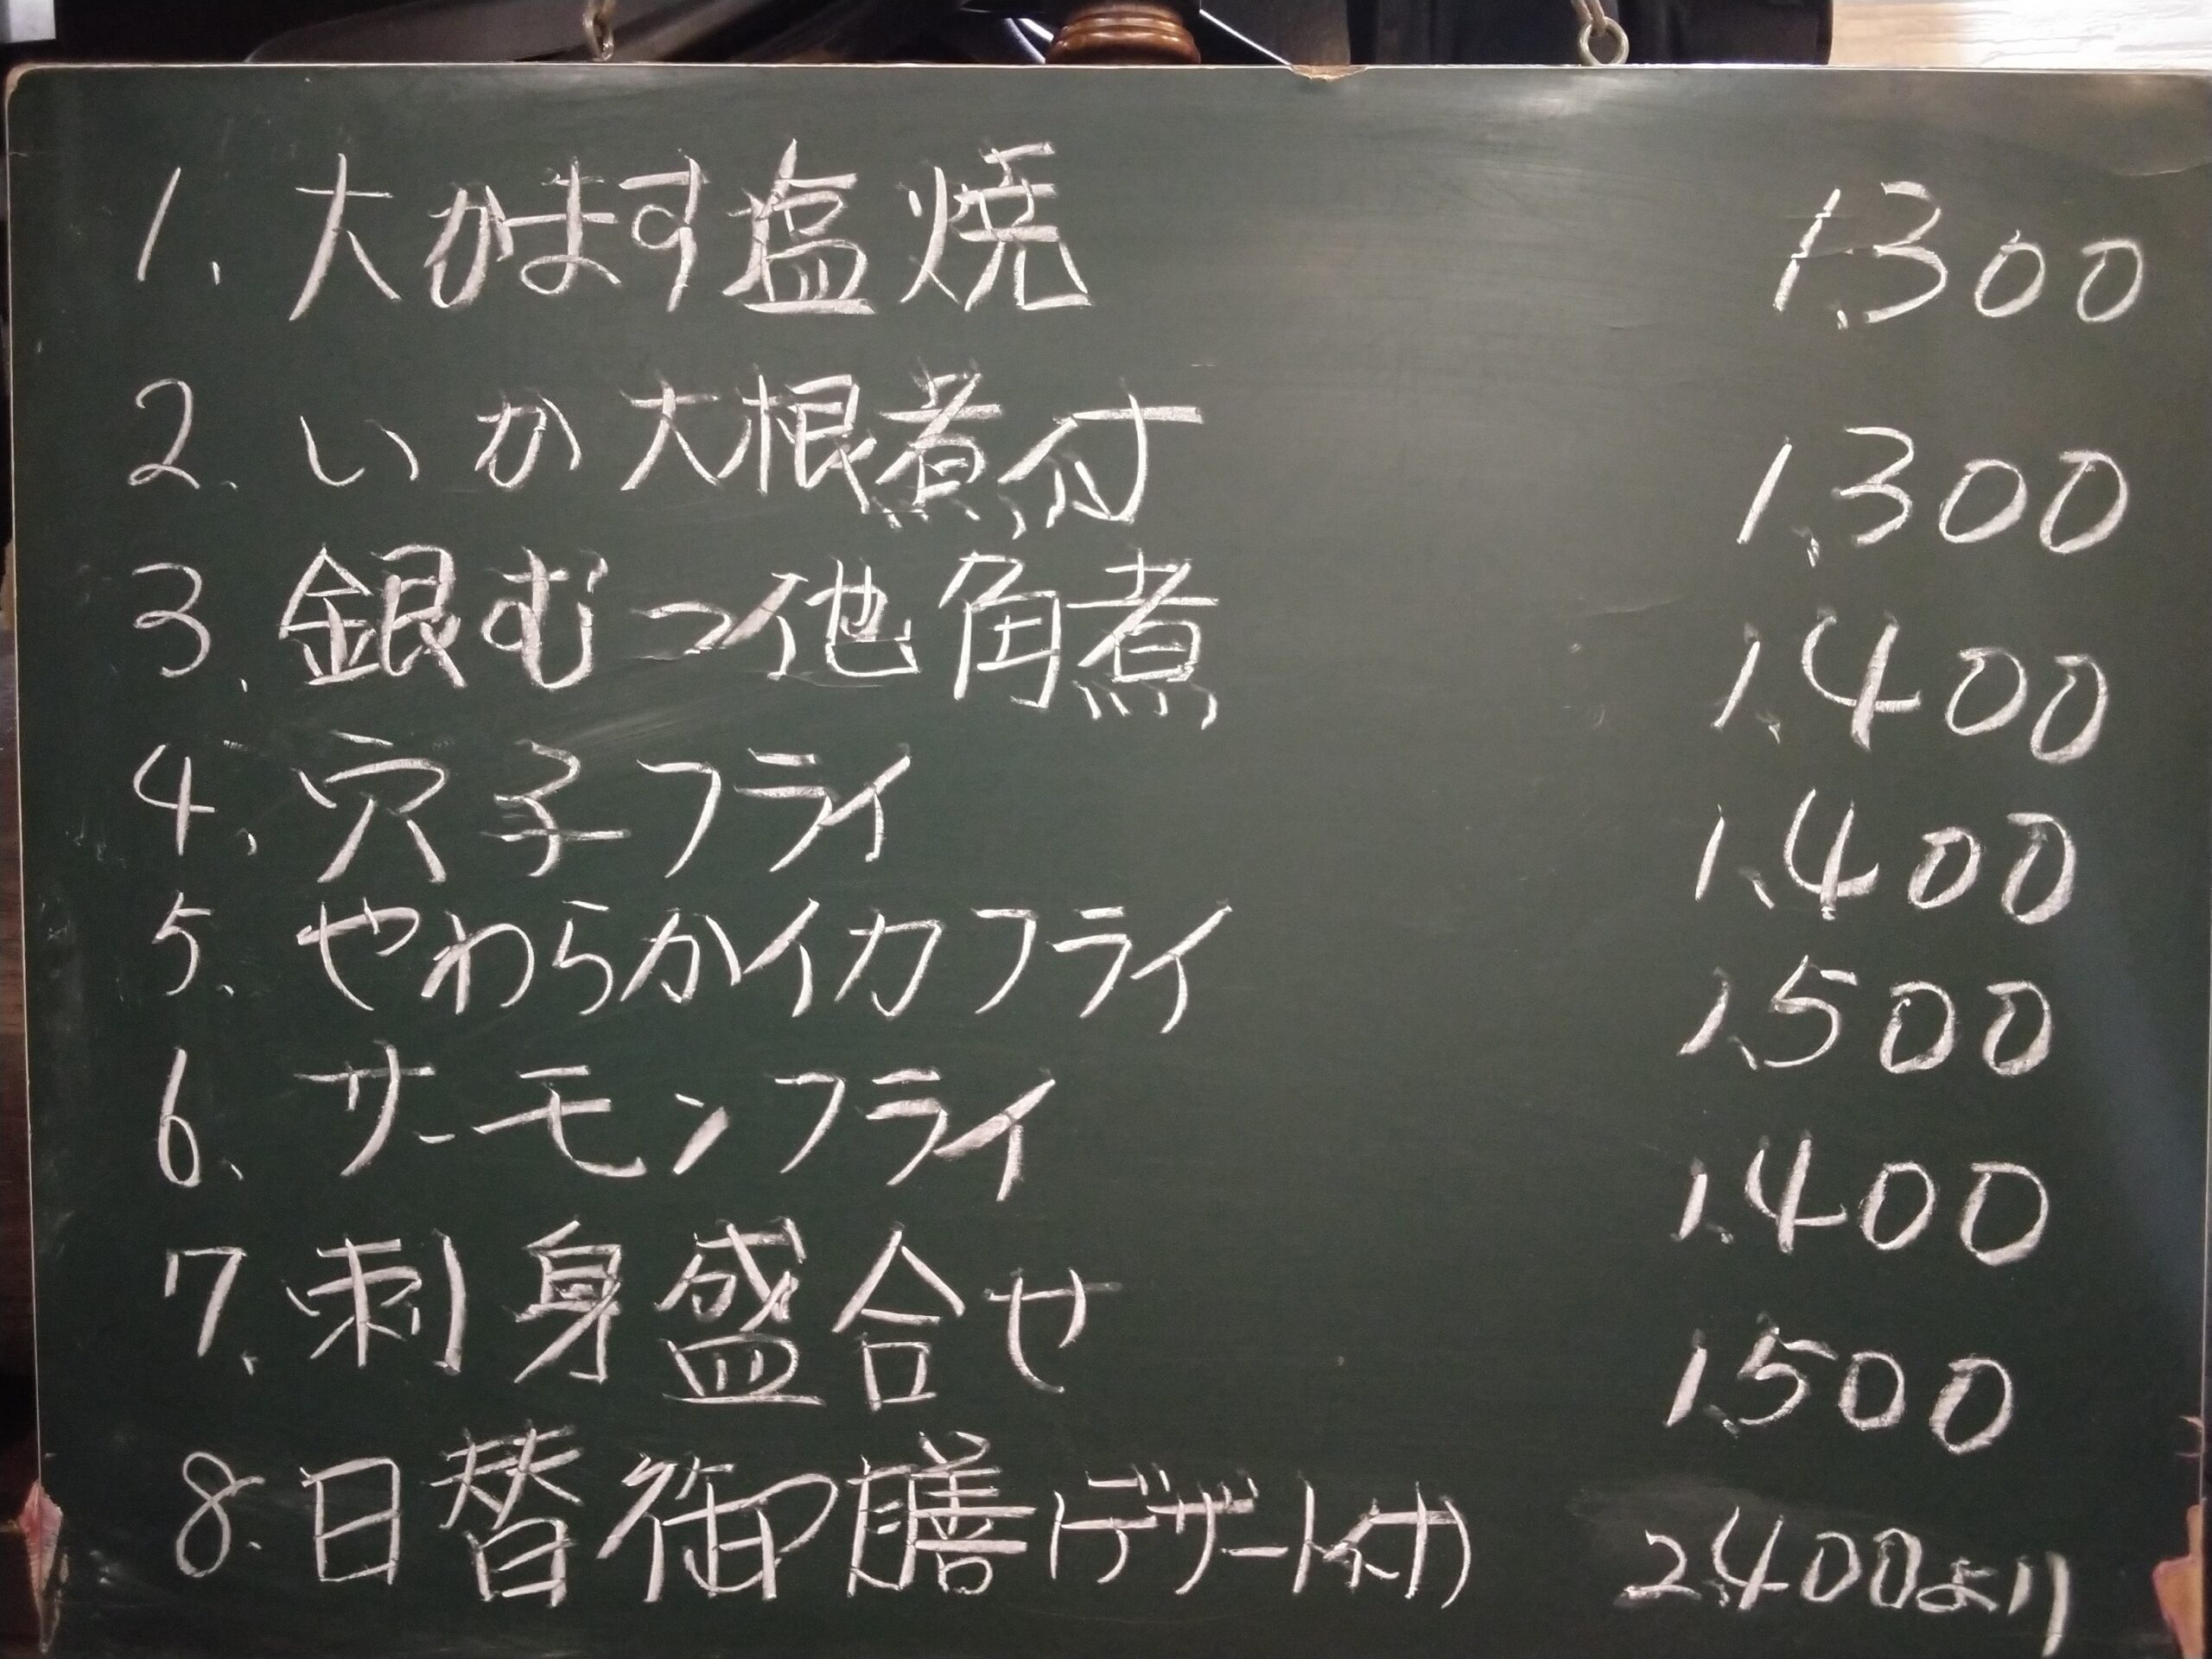 1. 大かます塩焼 1,300
2. いか大根煮付 1,300
3. 銀むつ他角煮 1,400
4. 穴子フライ 1,400
5. やわらかイカフライ 1,500
6. サーモンフライ 1,400
7. 刺身盛合せ 1,500
8. 日替御膳(デザート付) 2,400より